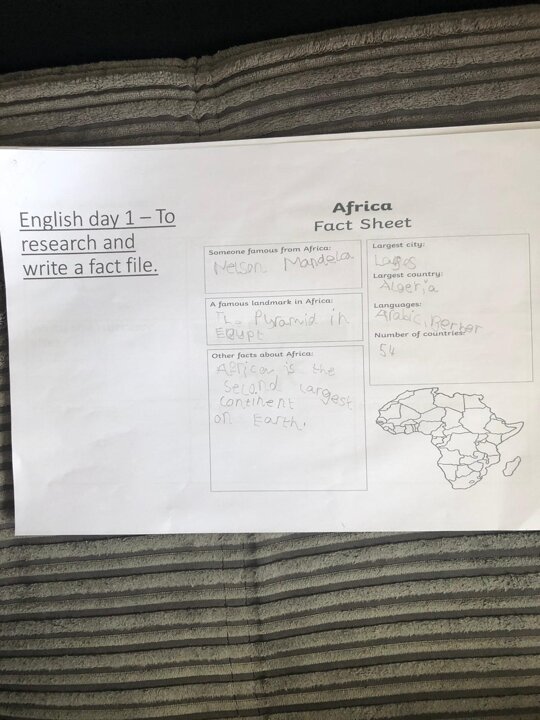 English day 1 – To
research and
write a fact file.
Africa
Fact Sheet
Someone famous from Africa:
Nelson Mandela
A famous landmark in Africa:
The Pyramid in
Egypt
Other facts about Africa:
African is the
second largest
continent
on Earth.
Largest city:
Lagos
Largest country:
Algeria
Languages:
Arabic, Berber
Number of countries:
54